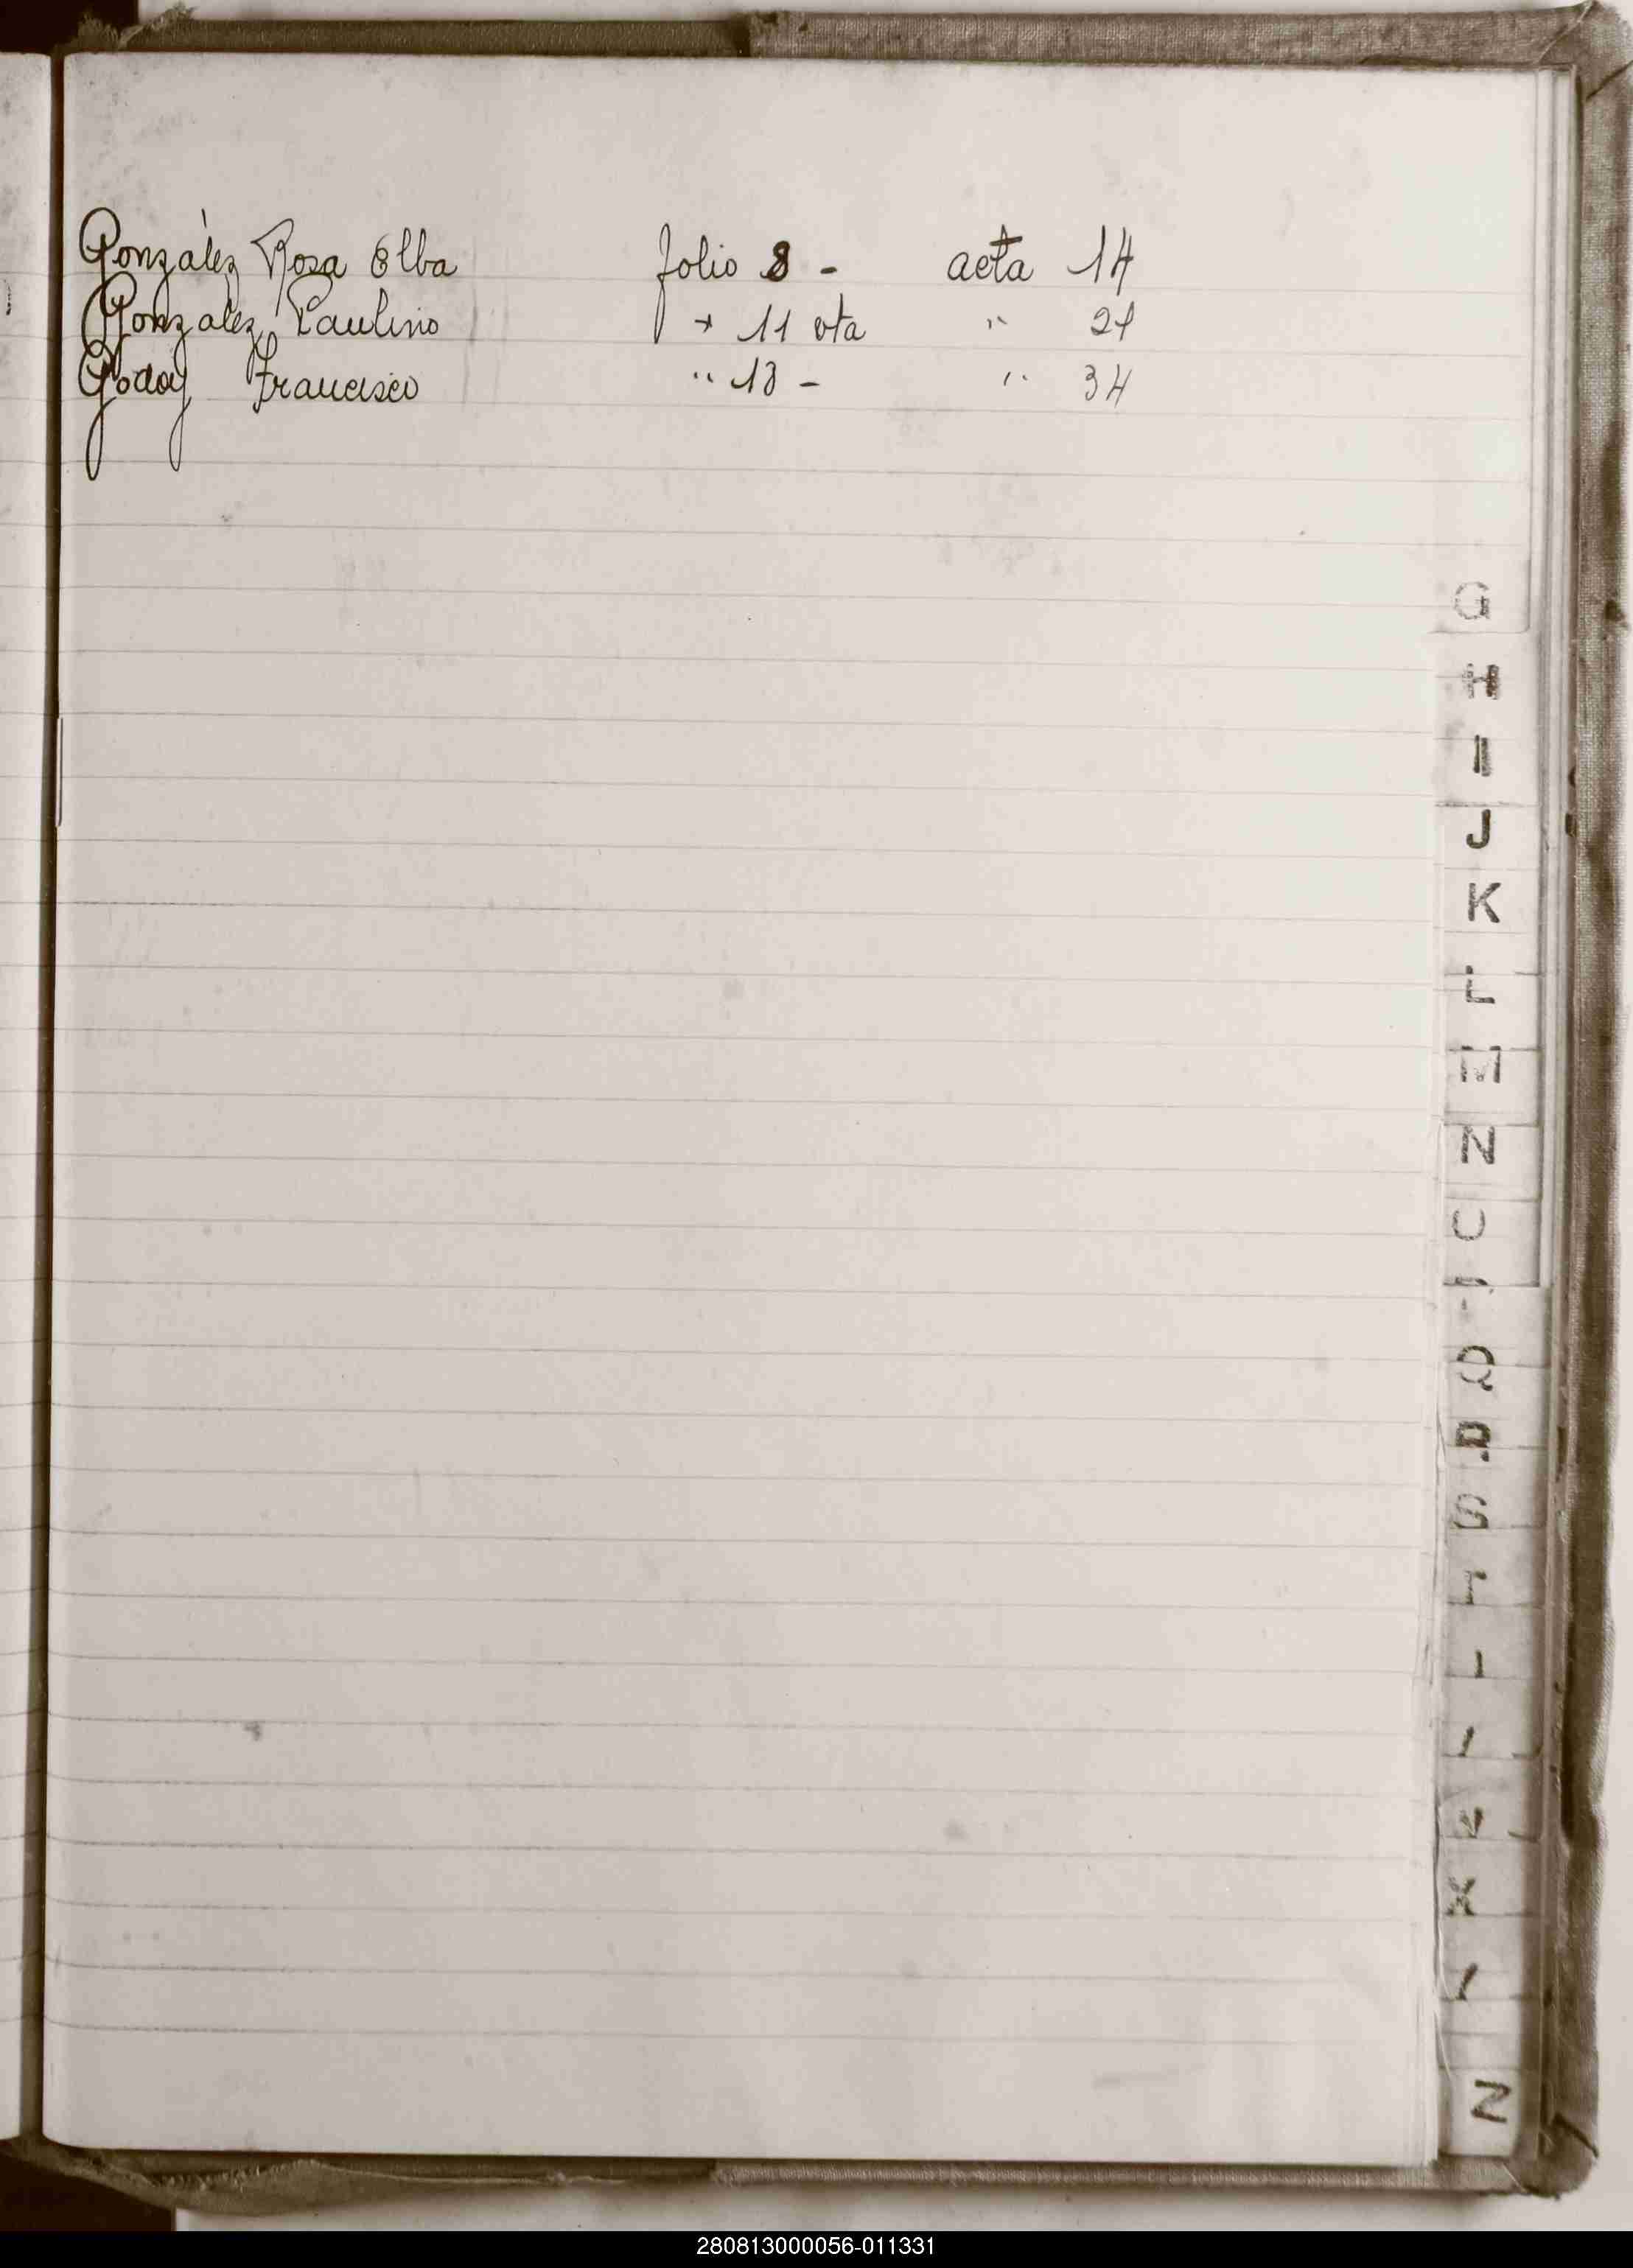 Gonzàlez Rosa Elba folio 8 - acta 14
Gonzalez Paulino " 11 vta " 21
Godoy Francisco " 18 - " 34
G
H
I
J
K
L
M
N
O
Q
R
S
T
X
Z
280813000056-011331